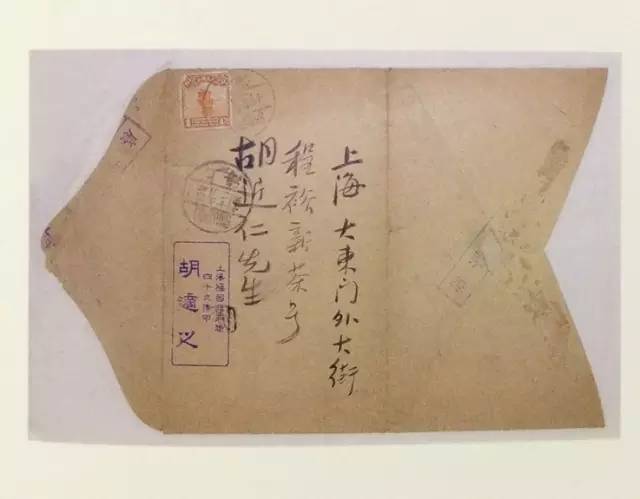 上海大東门外大街
程裕新茶号
胡近仁先生
上海極司
四十九號甲
胡適之